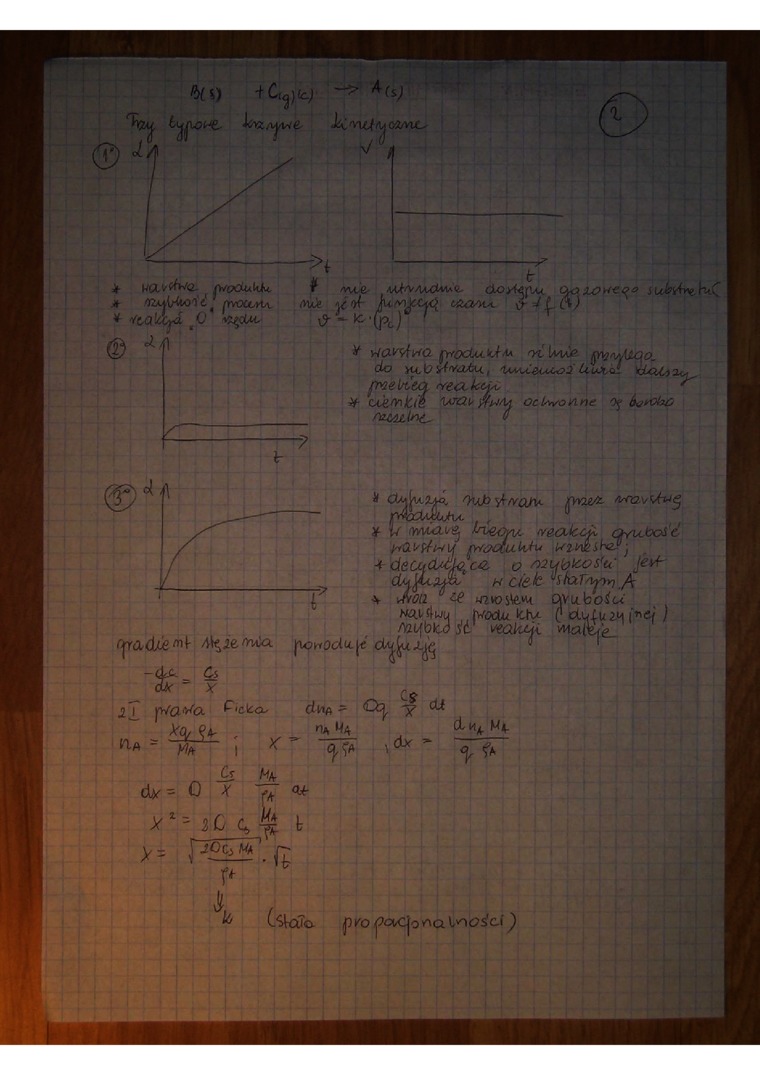 B(s) + C(g)(c) → A(s)
2
Trzy typowe krzywe kinetyczne
1° α t
V t
* warstwa produktu nie utrudnia dostępu gazowego substratu
* szybkość procesu nie jest funkcją czasu ϑ ≠ f(t)
* reakcja "0" rzędu ϑ = k·(pc)
2° α t
* warstwa produktu silnie przylega
do substratu, uniemożliwia dalszy
przebieg reakcji
* cienkie warstwy ochronne są bardzo
szczelne
3° α t
* dyfuzja substratu przez warstwę
produktu
* w miarę biegu reakcji grubość
warstwy produktu wzrasta;
* decydująca o szybkości jest
dyfuzja w ciele stałym A
* wraz ze wzrostem grubości
warstwy produktu (dyfuzyjnej)
szybkość reakcji maleje
gradient stężenia powoduje dyfuzję
-dc/dx = Cs/x
z I prawa Ficka dnA = Dq Cs/x dt
nA = xqρA/MA ; x = nA MA/qρA , dx = dnA MA/qρA
dx = D Cs/x MA/ρA dt
x² = 2D Cs MA/ρA t
x = √(2DCs MA/ρA) · √t
⇓
k (stała proporcjonalności)